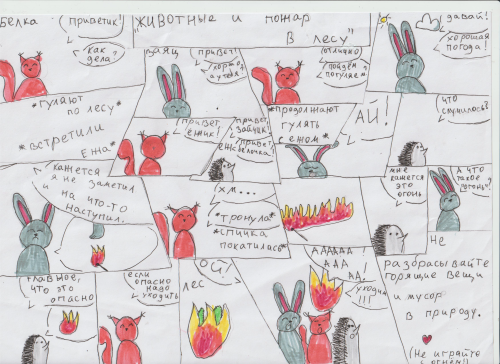 белка
приветик!
как
дела?
"животные и пожар
в лесу"
заяц
привет!
хорошо,
а у тебя?
отлично
пойдём
погуляем
давай!
хорошая
погода!
*гуляют
по лесу*
*встретили
ежа*
привет,
ёжик!
привет,
зайчик!
привет,
белочка
ёж
*продолжают
гулять
с ежом*
АЙ!
что
случилось?
кажется
я не заметил
и на что-то
наступил.
хм...
*тронула*
*спичка
покатилась*
мне
кажется
это
огонь
А что
такое
"огонь"?
главное,
что это
опасно
если
опасно
надо
уходить
ОЙ!
лес
АААААА
ААА
АА!
уходим
!!!
Не
разбрасывайте
горящие вещи
и мусор
в природу.
(Не играйте
с огнём!)